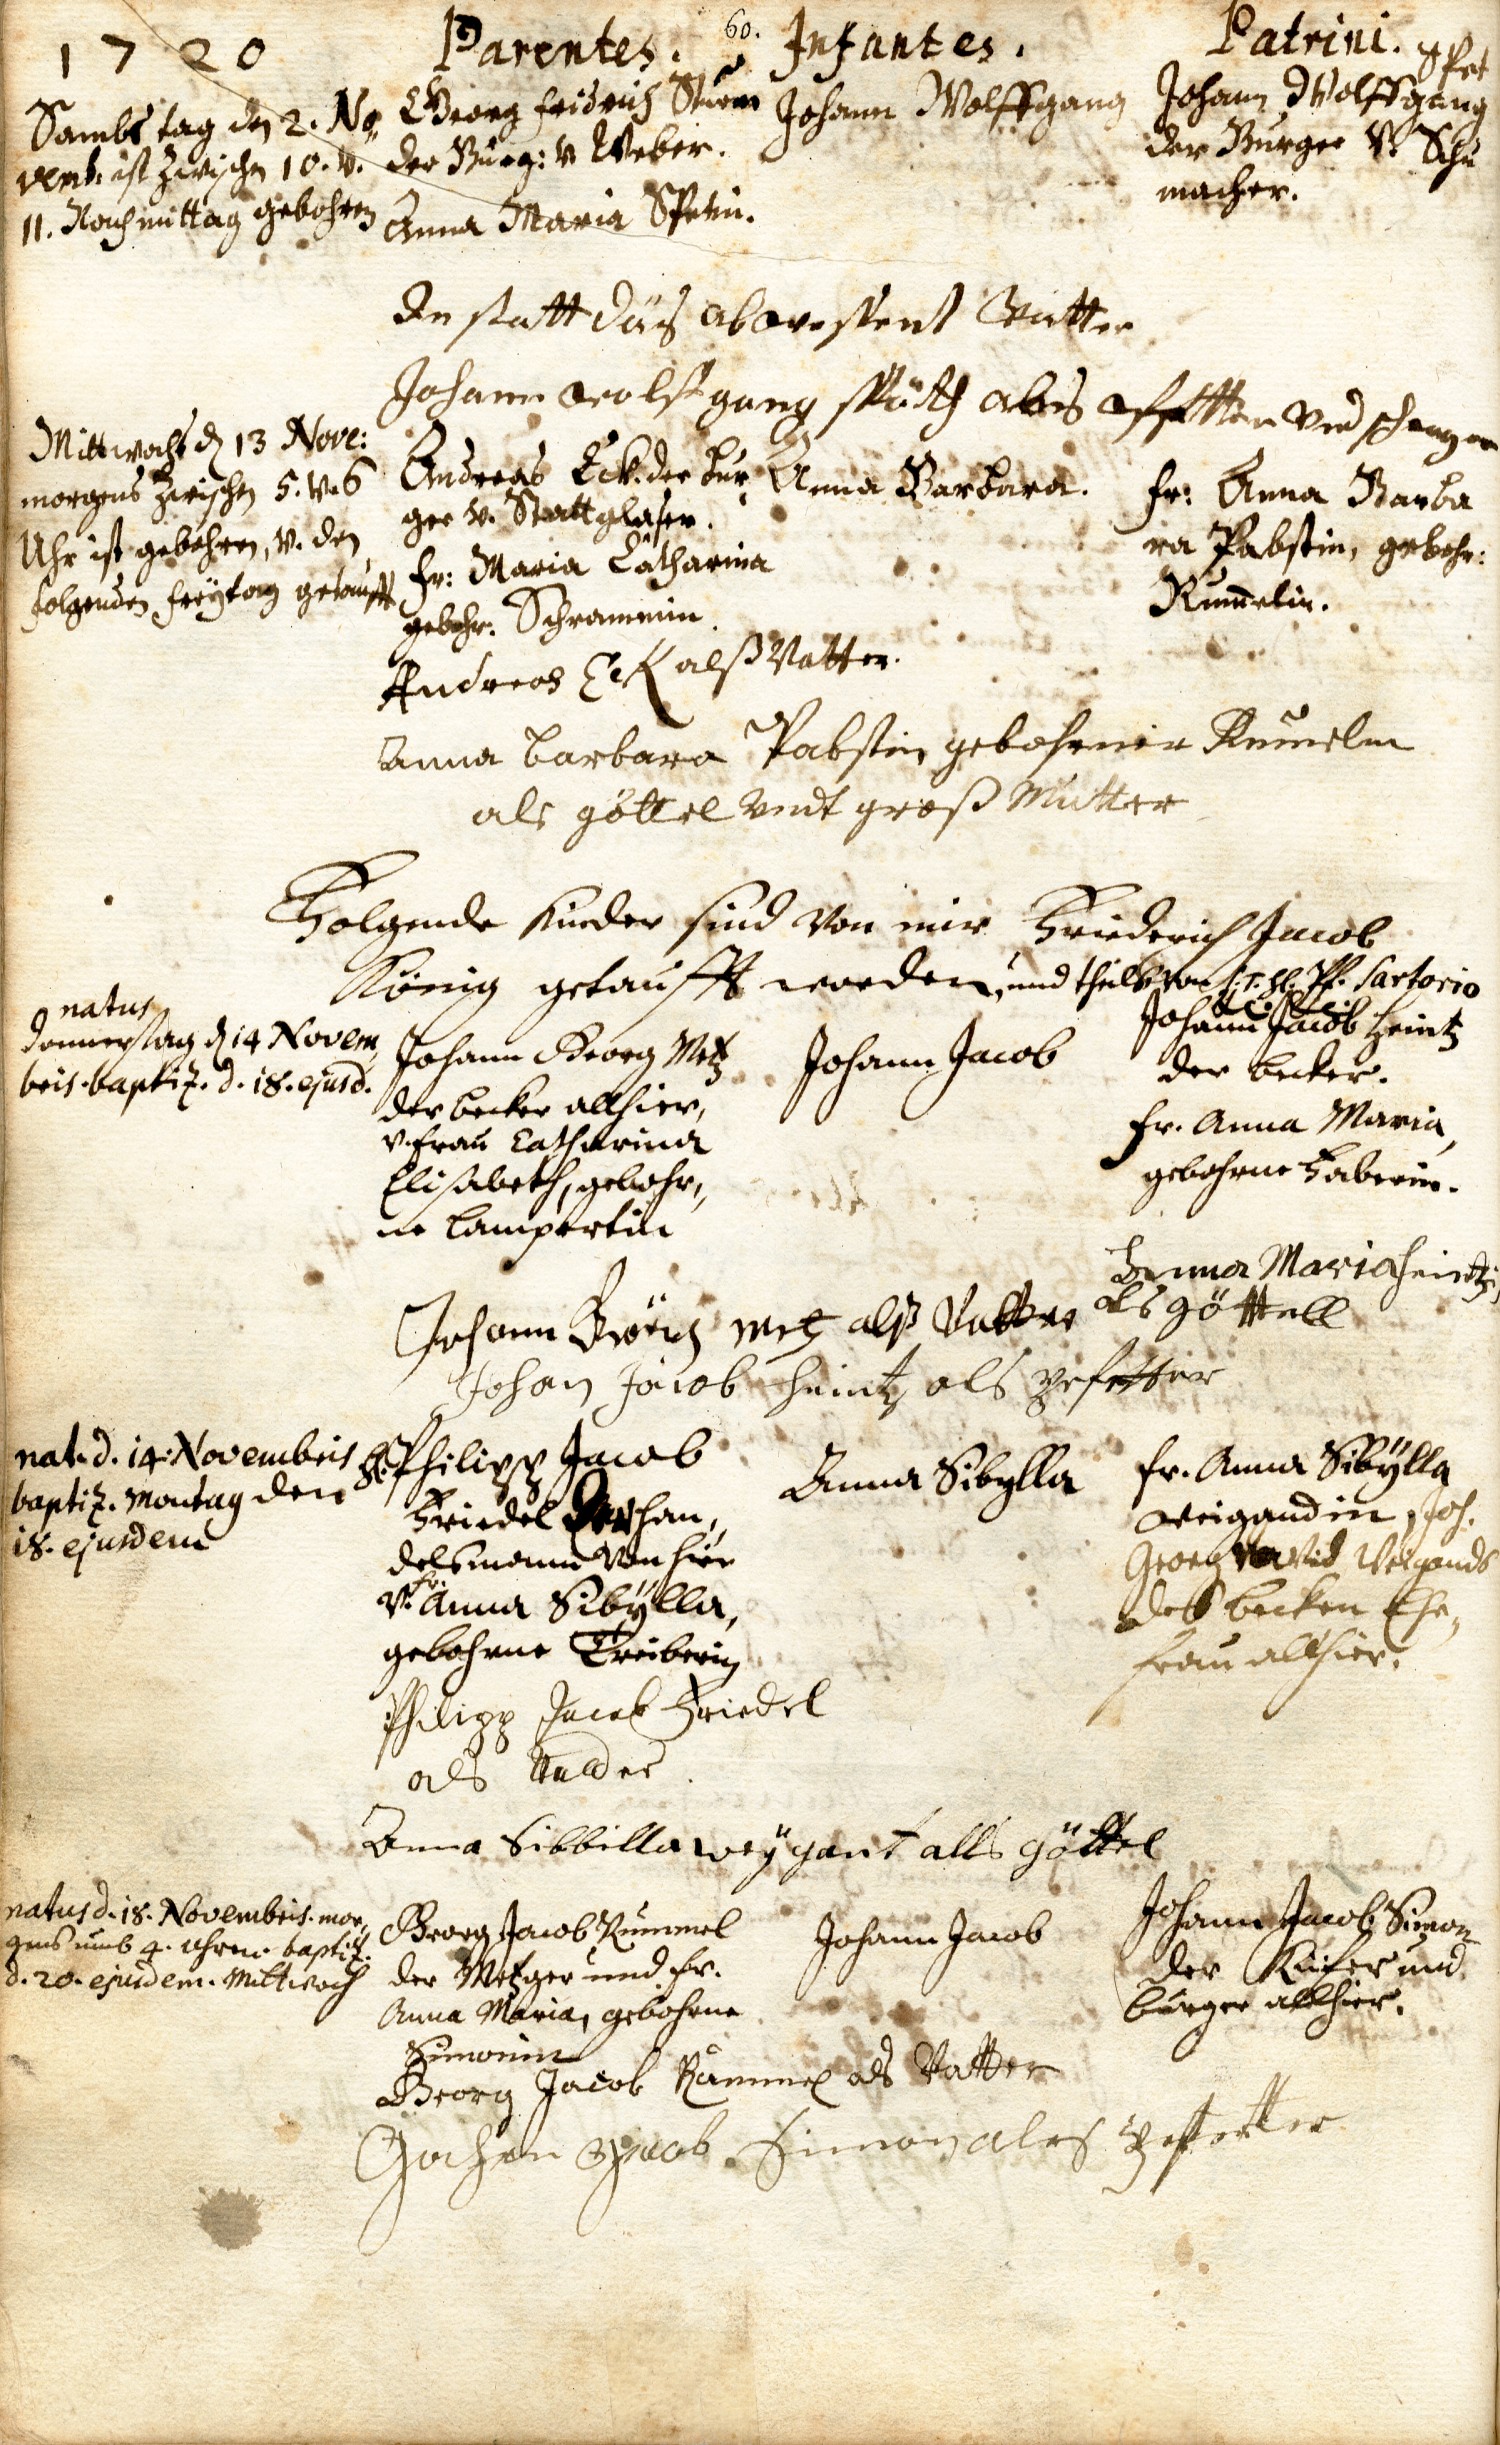 60.
1720 Parentes. Infantes. Patrini.
Sambstag den 2. No„
vemb: ist zwischen 10. v.
11. Nachmittag gebohren
Georg Fridrich Sturm
der Burg: v. Weber.
Anna Maria Spetin.
Johann Wolffgang
Spet
Johann Wolffgang
der Burger v. Schu
macher.
An statt des Vatter
Johann Wolfgang Späth als
Mittwochs d 13 Nove:
morgens zwischen 5. v. 6
Uhr ist gebohren, v. den
folgenden Freytag getaufft
Andreas Eck der bur„
ger v. Stattglaser.
Fr: Maria Catharina
gebohr. Schrammin.
Anna Barbara.
Fr: Anna Barba
ra Pabstin, gebohr:
Rummelin.
Andreas Eck alß Vatter.
Anna Barbara Pabstin gebohrnein Rumelin
als göttel undt groß Mutter
Folgende Kinder sind von mir Friederich Jacob
König getaufft worden, und theils von Pf. Sartorio
natus
Donnerstag d 14 Novem„
bris. baptiz. d. 18. ejusd.
Johann Georg Metz
der becker allhier,
v. Frau Catharina
Elisabeth, gebohr„
ne Lampertin
Johann Jacob
Johann Jacob Heintz
der becker.
Fr. Anna Maria,
gebohrne Haberin.
Anna Maria heintzin
als göttell
Johann Görg Metz alß Vatter
Johan Jacob heintz als pfetter
nat. d. 14. Novembris
baptiz. Montag den
18. ejusdem
H. Philipp Jacob
Friedel han„
delsmann von hier
v. Fr. Anna Sibylla,
gebohrne Treiberin
Anna Sibylla
Fr. Anna Sibylla
Weigandin, Joh.
Georg David Weigands
des becken Ehe„
frau allhier.
Philipp Jacob Friedel
als Vatder.
Anna Sibbilla weygant alls göttel
natus d. 18. Novembris. mor„
gens umb 4. uhren. baptiz.
d. 20. ejusdem. Mittwoch
Georg Jacob Rummel
der Metzger und Fr.
Anna Maria, gebohrne
Simonin
Johann Jacob
Johann Jacob Simon
der Kiefer und
burger allhier.
Georg Jacob Rummel als Vatter
Johan Jacob Simon als pfetter